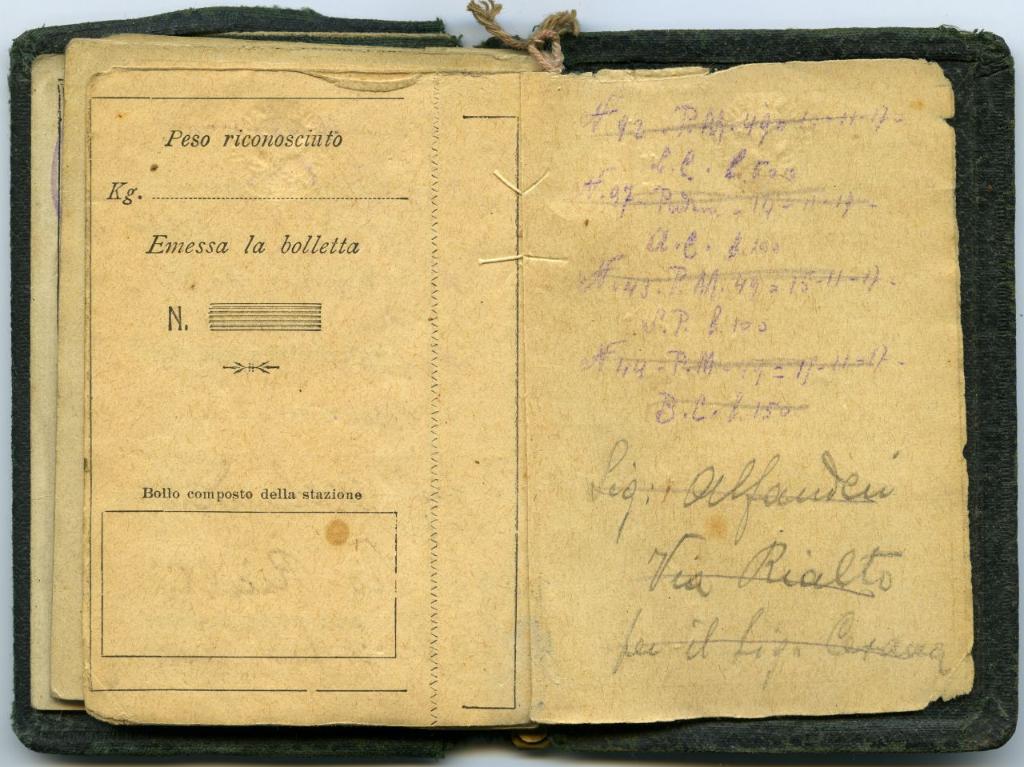 Peso riconosciuto
Kg.
Emessa la bolletta
N.
Bollo composto della stazione
N 92 - P.M. 49 = 11-17 -
L. 500
N. 97 - = 19 = 11-17 -
A. C. L. 100
N. 43 - P.M. 49 = 15-11-17 -
S. P. L. 100
N 44 - P.M. = 17-11-17 -
B. C. L. 150
Sig:
Via Rialto
per il Sig.